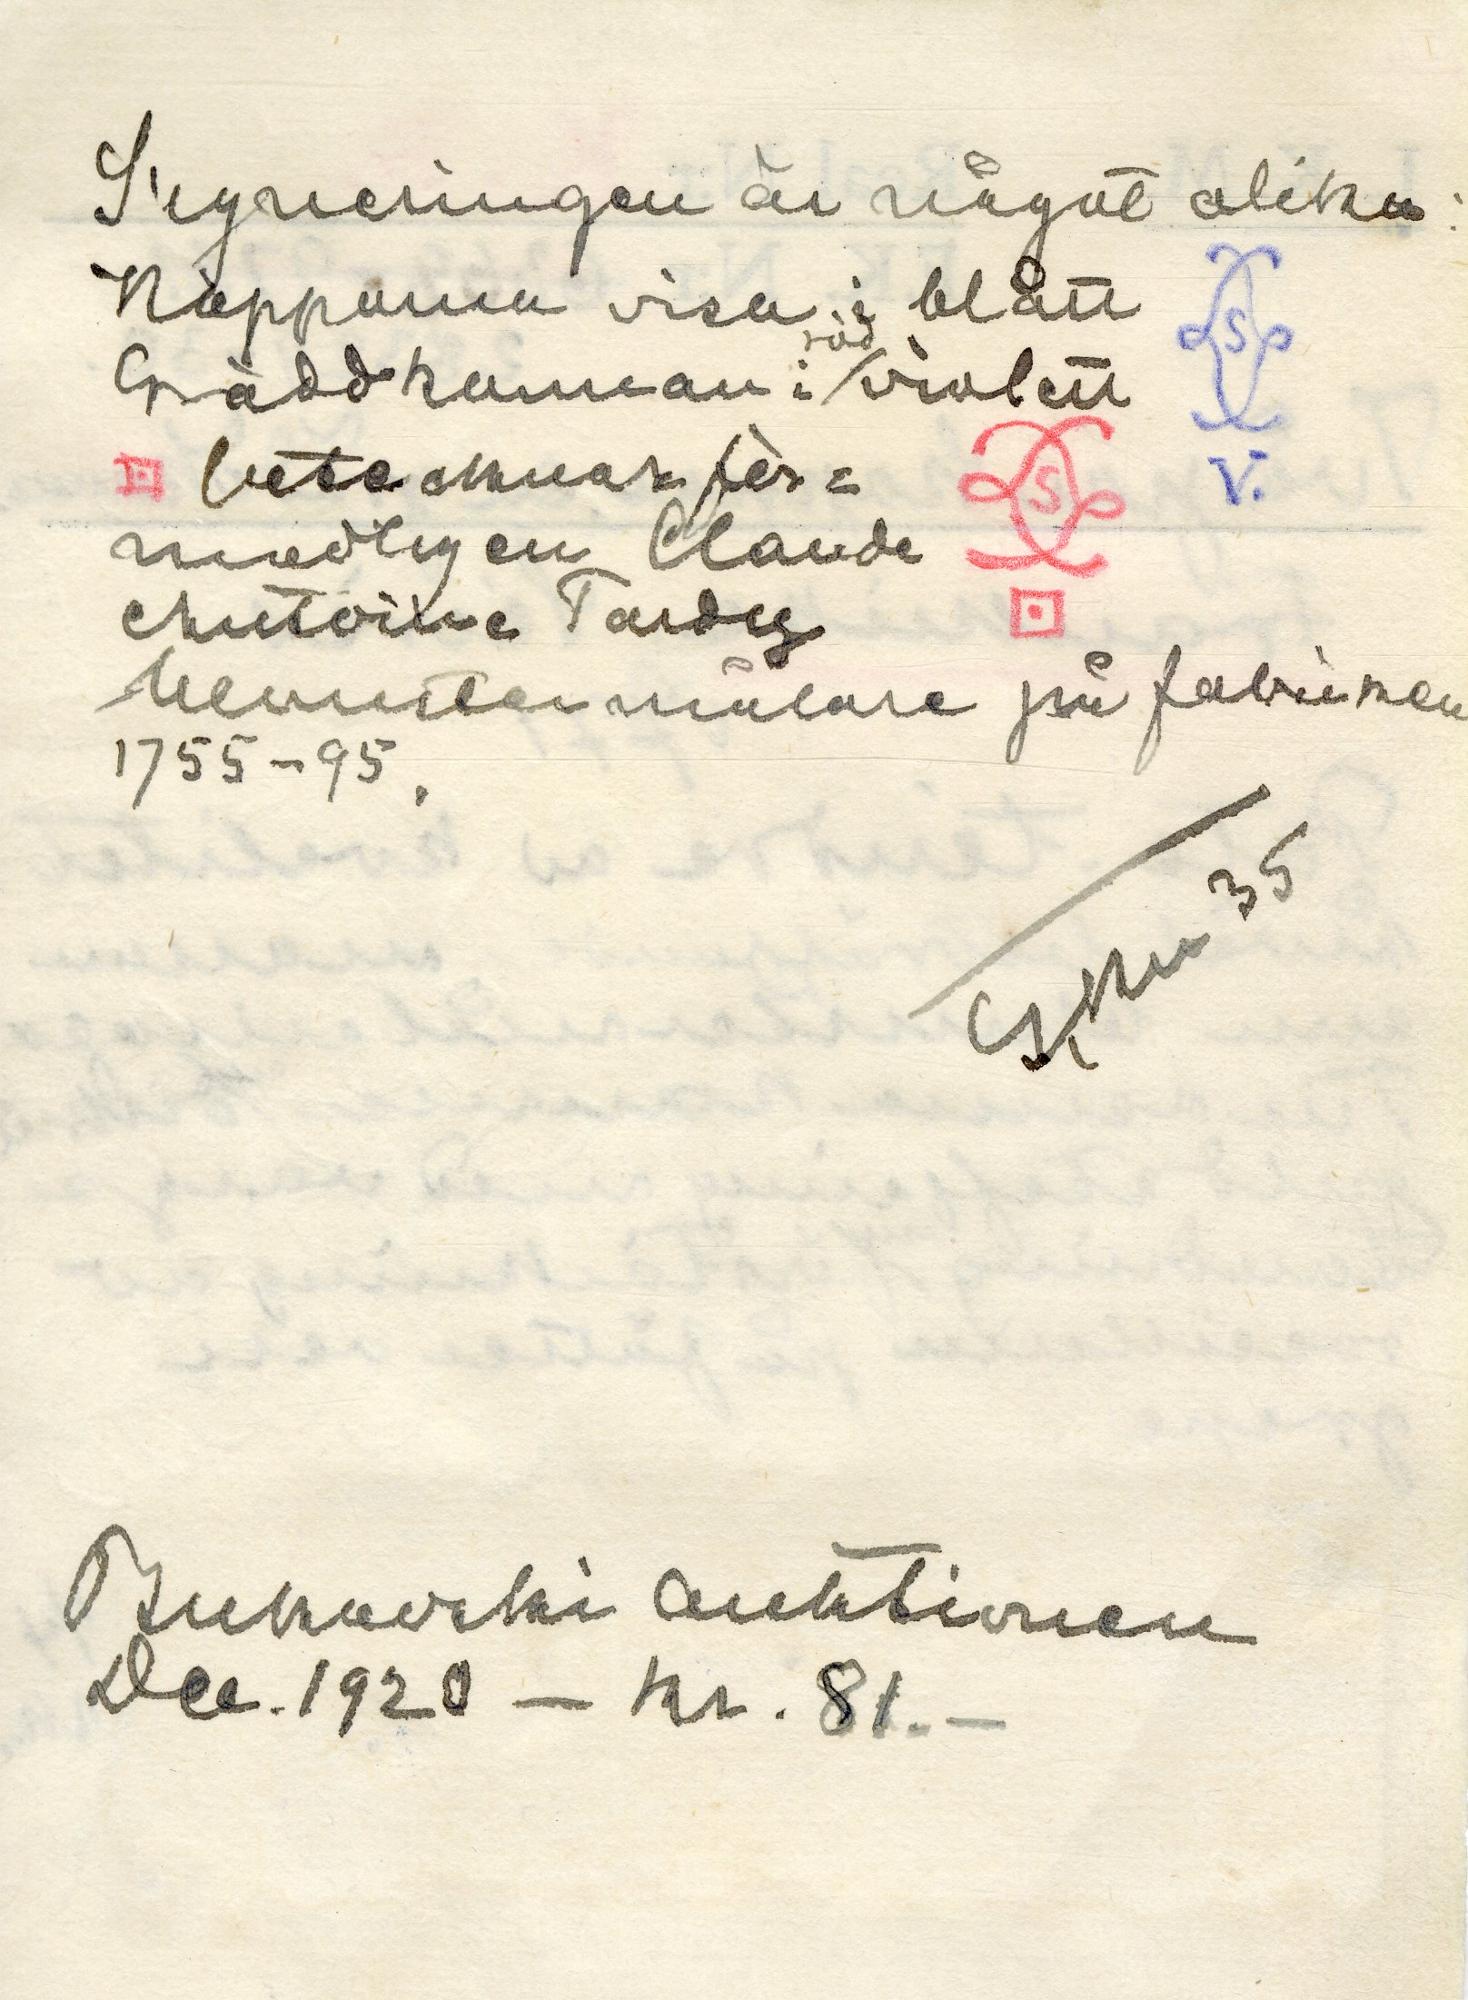 Signeringen är något olika:
Kopparna visa i blått
S
V.
Gräddkannan i röd/violett
S
betecknar för=
modligen Claude
Antoine Tardy
blomstermålare på fabriken
1755-95.
35
Bukowski auktionen
Dec. 1920 — kr. 81.—